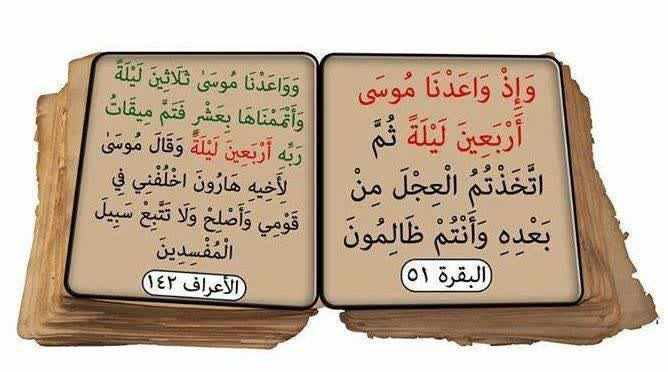 وَإِذْ وَاعَدْنَا مُوسَى
أَرْبَعِينَ لَيْلَةً ثُمَّ
اتَّخَذْتُمُ الْعِجْلَ مِنْ
بَعْدِهِ وَأَنْتُمْ ظَالِمُونَ
البقرة ٥١
وَوَاعَدْنَا مُوسَىٰ ثَلَاثِينَ لَيْلَةً
وَأَتْمَمْنَاهَا بِعَشْرٍ فَتَمَّ مِيقَاتُ
رَبِّهِ أَرْبَعِينَ لَيْلَةً وَقَالَ مُوسَىٰ
لِأَخِيهِ هَارُونَ اخْلُفْنِي فِي
قَوْمِي وَأَصْلِحْ وَلَا تَتَّبِعْ سَبِيلَ
الْمُفْسِدِينَ
الأعراف ١٤٢